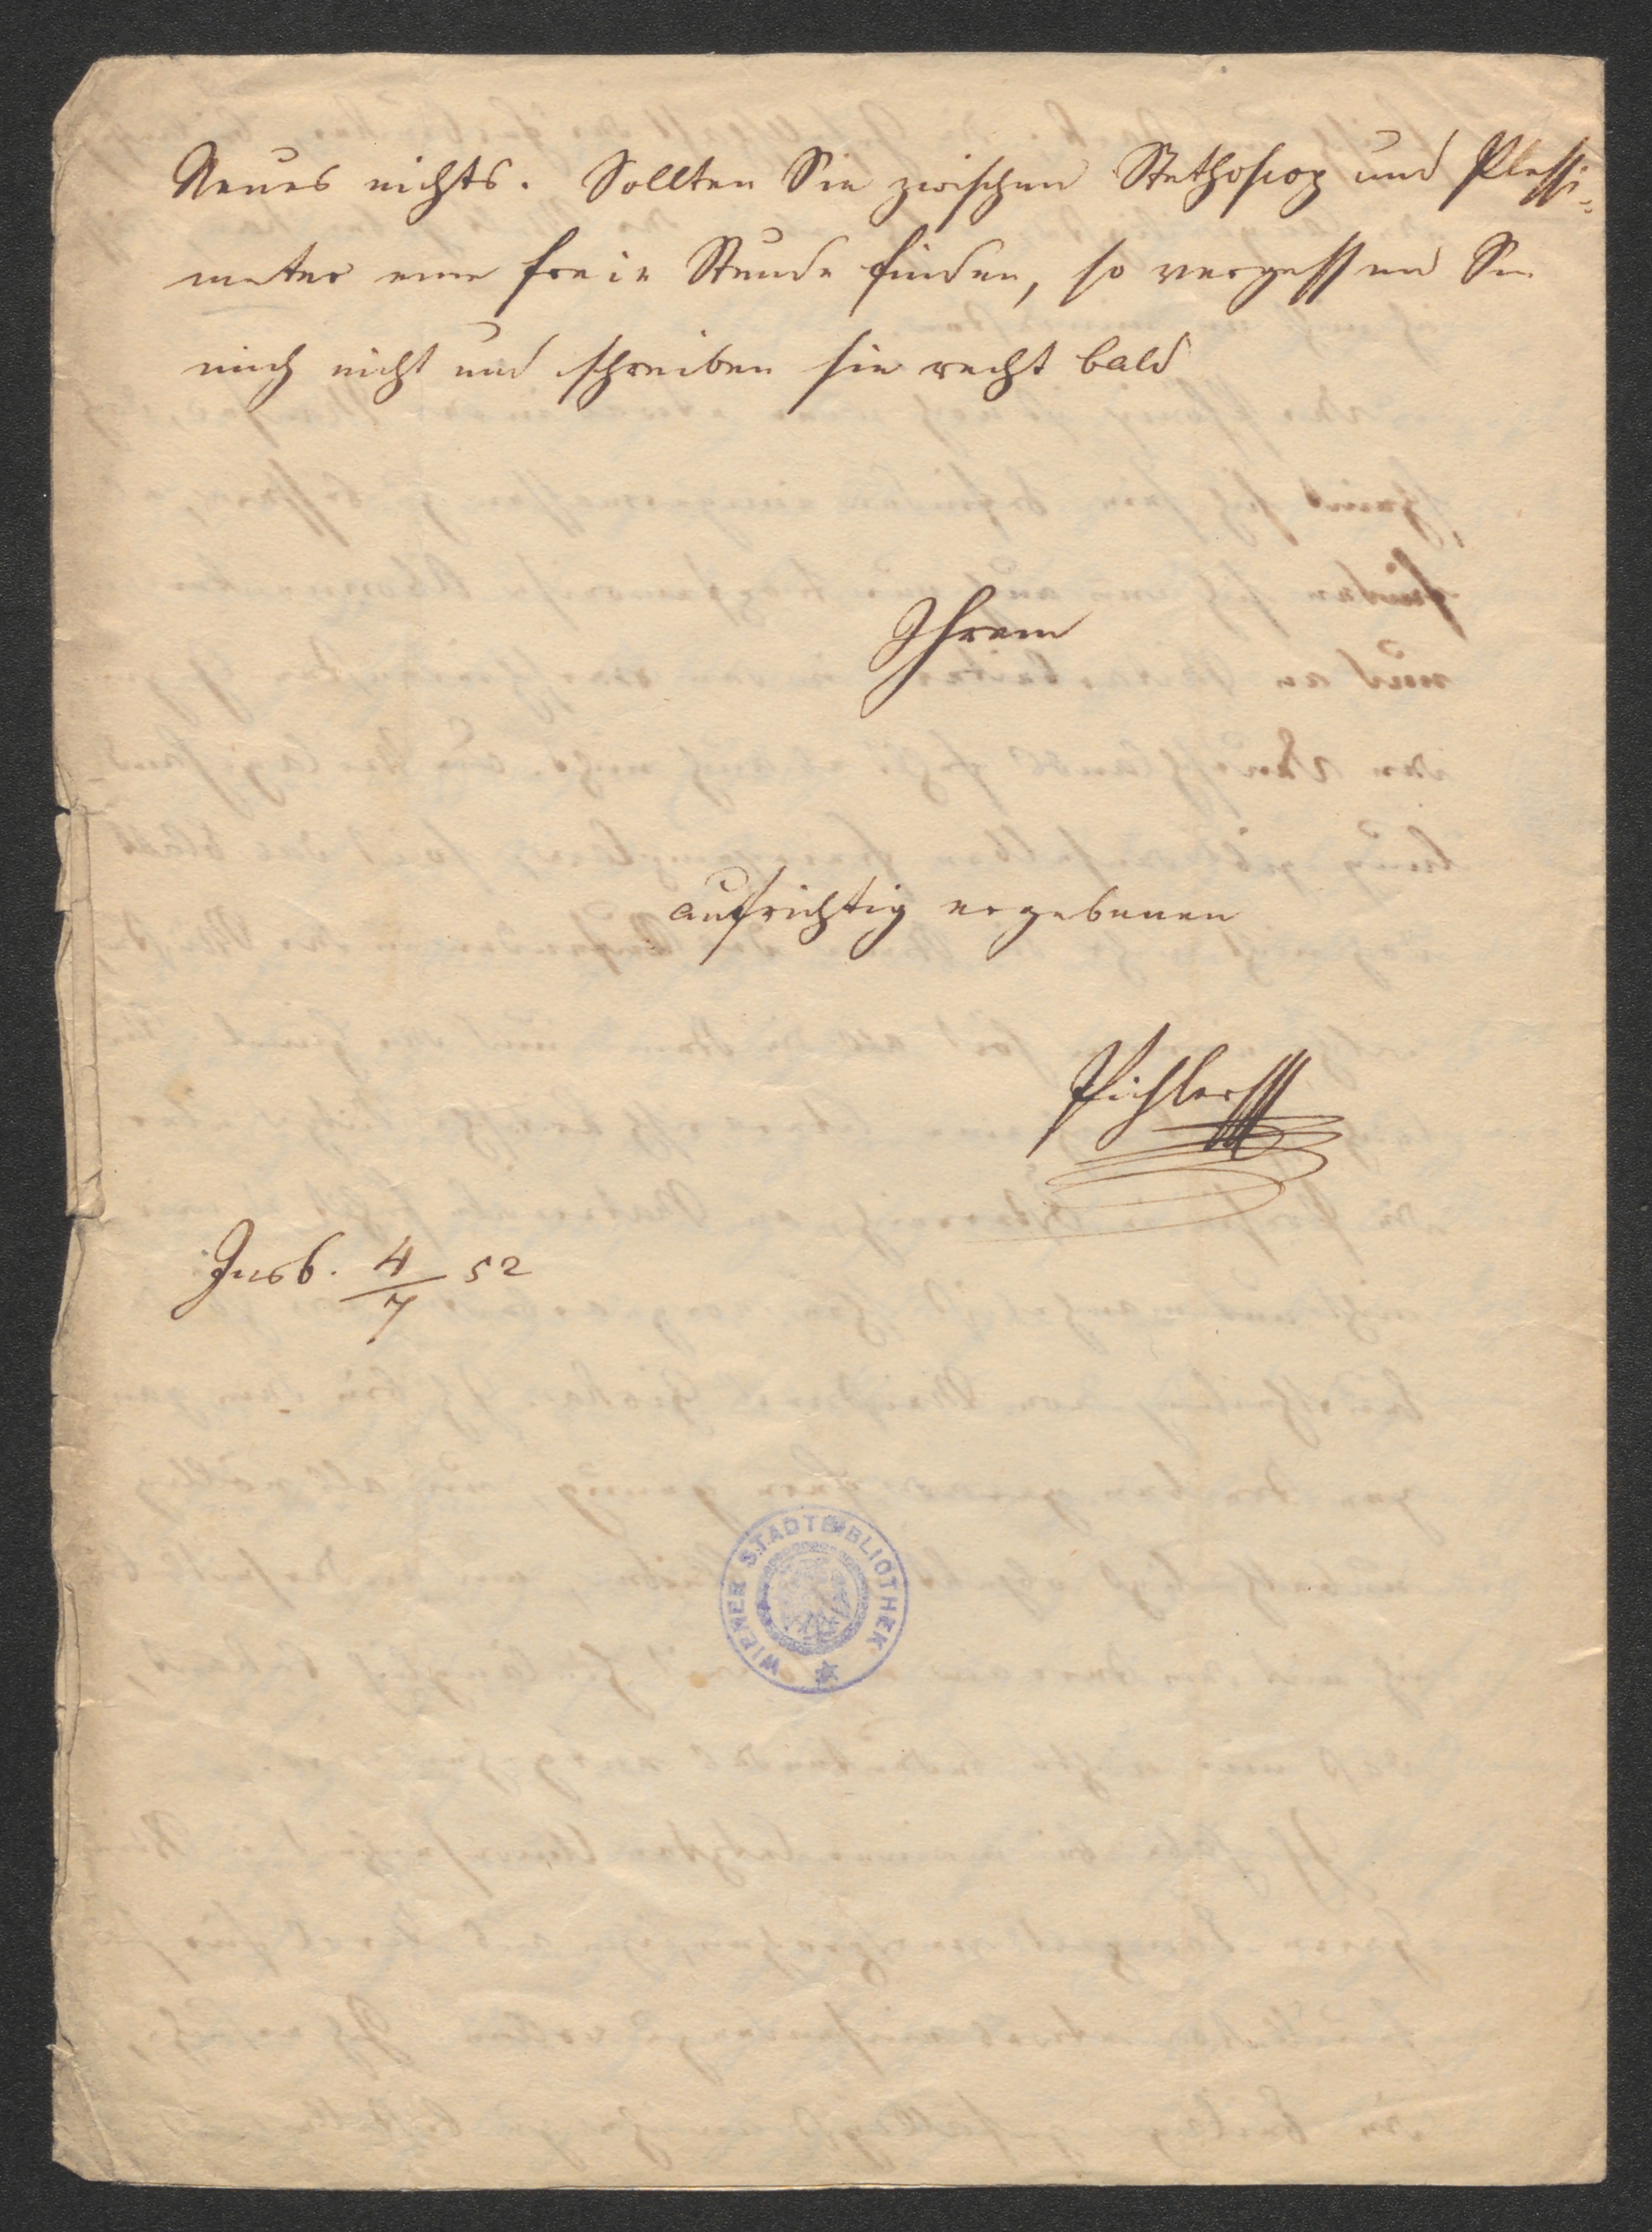 Neues nichts. Sollten Sie zwischen Stethoscop und Plessi-
meter eine freie Stunde finden, so vergessen Sie
mich nicht und schreiben sie recht bald
Ihrem
aufrichtig ergebenen
Pichler
Insb. 4/7 52
WIENER STADTBIBLIOTHEK